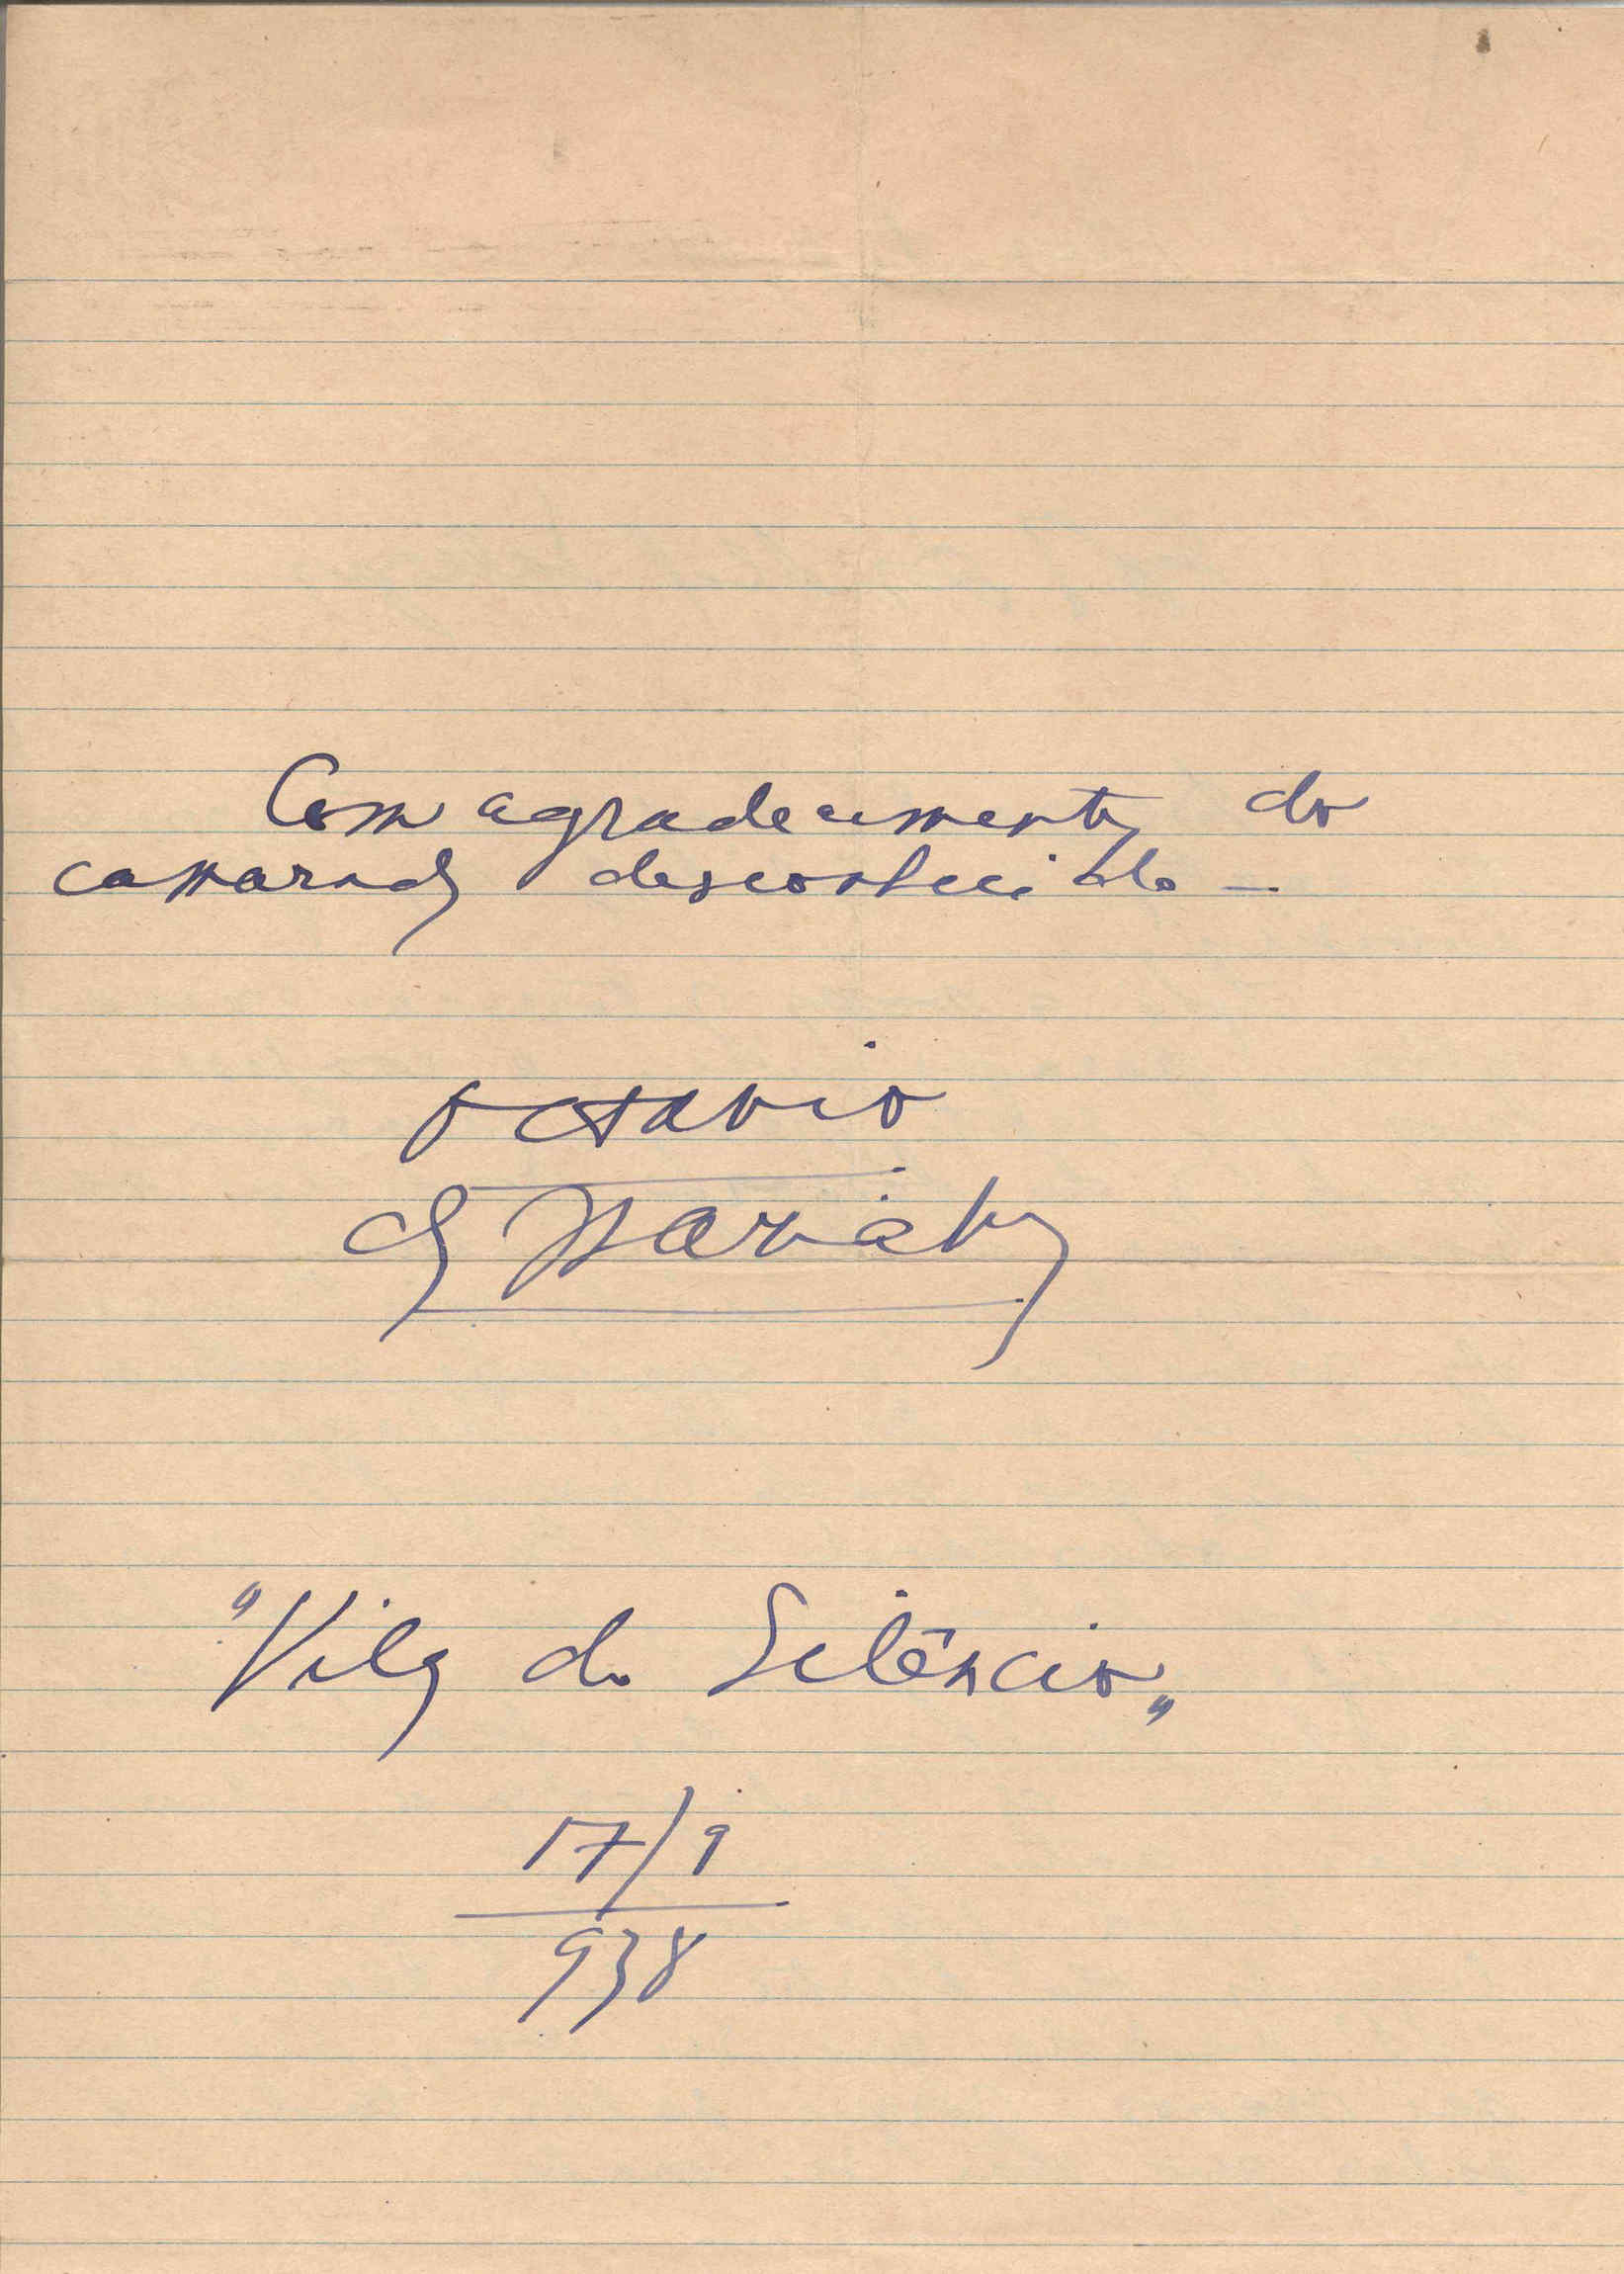 Com agradecimento do
camarada desconhecido —
Octavio
de Faria
"Vila do Silêncio"
17/9
938